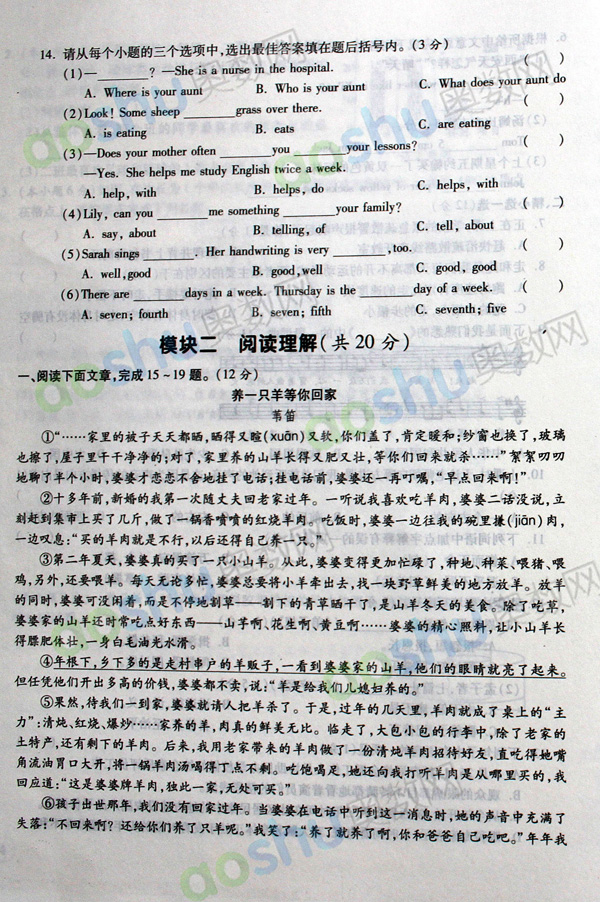 14. 请从每个小题的三个选项中,选出最佳答案填在题后括号内。(3 分)
(1)—________? —She is a nurse in the hospital. ( )
A. Where is your aunt B. Who is your aunt C. What does your aunt do
(2)Look! Some sheep ________grass over there. ( )
A. is eating B. eats C. are eating
(3)—Does your mother often ________you ________your lessons? ( )
—Yes. She helps me study English twice a week.
A. help, with B. helps, do C. helps, with
(4)Lily, can you ________me something ________your family? ( )
A. say, about B. telling, of C. tell, about
(5)Sarah sings ________. Her handwriting is very ________,too. ( )
A. well,good B. good,well C. good,good
(6)There are ________days in a week. Thursday is the ________day of a week. ( )
A. seven; fourth B. seven; fifth C. seventh; five
模块二 阅读理解(共 20 分)
一、阅读下面文章,完成 15~19 题。(12 分)
养一只羊等你回家
苇笛
①“……家里的被子天天都晒,晒得又暄(xuān)又软,你们盖了,肯定暖和;纱窗也换了,玻璃
也擦了,屋子里干干净净的;对了,家里养的山羊长得又肥又壮,等你们回来就杀……”絮絮叨叨
地聊了半个小时,婆婆才恋恋不舍地挂了电话;挂电话前,婆婆还一再叮嘱,“早点回来啊!”
②十多年前,新婚的我第一次随丈夫回老家过年。一听说我喜欢吃羊肉,婆婆二话没说,立
刻赶到集市上买了几斤,做了一锅香喷喷的红烧羊肉。吃饭时,婆婆一边往我的碗里搛(jiān)肉,
一边叹息:“买的羊肉就是不行,以后还得自己养一只。”
③第二年夏天,婆婆真的买了一只小山羊。从此,婆婆变得更加忙碌了,种地、种菜、喂猪、喂
鸡,另外,还要喂羊。每天无论多忙,婆婆总要将小羊牵出去,找一块野草鲜美的地方放羊。放羊
的同时,婆婆可没闲着,而是不停地割草——割下的青草晒干了,是山羊冬天的美食。除了吃草,
婆婆家的山羊还时常吃点好东西——山芋啊、花生啊、黄豆啊……婆婆的精心照料,让小山羊长
得膘肥体壮,一身白毛油光水滑。
④年根下,乡下多的是走村串户的羊贩子,一看到婆婆家的山羊,他们的眼睛就亮了起来。
但任凭他们开出多高的价钱,婆婆都不卖,说:“羊是给我们儿媳妇养的。”
⑤果然,待我们一到家,婆婆就请人把羊杀了。于是,过年的几天里,羊肉就成了桌上的“主
力”:清炖、红烧、爆炒……家养的羊,肉真的鲜美无比。临走了,大包小包的行李中,除了老家的
土特产,还有剩下的羊肉。后来,我用老家带来的羊肉做了一份清炖羊肉招待好友,直吃得她嘴
角流油胃口大开,将一锅羊肉汤喝得了点不剩。吃饱喝足,她还向我打听羊肉是从哪里买的,我
回应道:“这是婆婆牌羊肉,独此一家,无处可买。”
⑥孩子出世那年,我们没有回家过年。当婆婆在电话中听到这一消息时,她的声音中充满了
失落:“不回来啊?还给你们养了只羊呢。”我笑了:“养了就养了啊,你和爸爸自己吃吧。”年年我
aoshu奥数网
aoshu奥数网
aoshu奥数网
aoshu奥数网